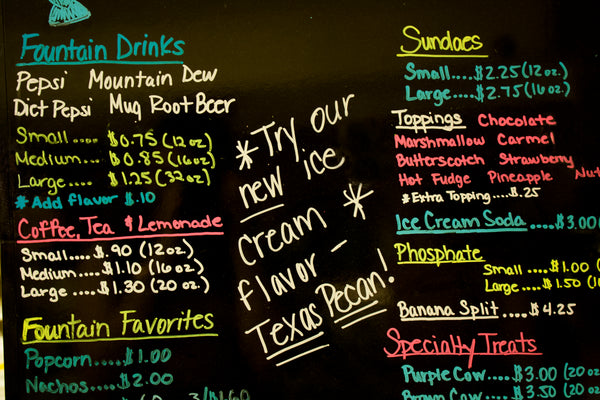 Fountain Drinks
Pepsi Mountain Dew
Diet Pepsi Mug Root Beer
Small..... $0.75 (12 oz)
Medium.... $0.85 (16 oz)
Large.... $1.25 (32 oz)
*Add flavor $.10
Coffee, Tea & Lemonade
Small.... $.90 (12 oz.)
Medium.... $1.10 (16 oz.)
Large.... $1.30 (20 oz.)
Fountain Favorites
Popcorn..... $1.00
Nachos..... $2.00
*Try our
new ice
cream *
flavor -
Texas Pecan!
Sundaes
Small.... $2.25 (12 oz.)
Large.... $2.75 (16 oz.)
Toppings Chocolate
Marshmallow Carmel
Butterscotch Strawberry
Hot Fudge Pineapple Nut
*Extra Topping.... $.25
Ice Cream Soda .... $3.00
Phosphate
Small .... $1.00
Large .... $1.50
Banana Split .... $4.25
Specialty Treats
Purple Cow.... $3.00 (20 oz
Brown Cow.... $3.50 (20 oz